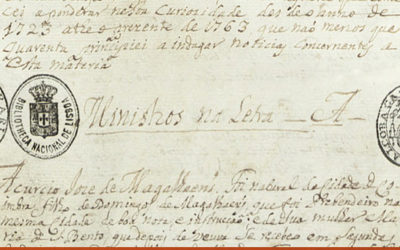 Cei a ponderar nesta Curiosidade des do anno de
1723 até o prezente de 1763 que naõ menos que
Quarenta principiei a indagar noticias concernentes a
Esta materia
BIBLIOTHECA NACIONAL DE LISBOA
Ministros na Letra - A -
Acurcio Joze de Magalhaens. Foi natural da Cidade de Co
imbra filho de Domingos de Magalhaens, que foi Prebendeiro na
mesma Cidade de boa nota e instrucçaõ e de sua mulher Ma
ria de S. Bento, que depois de veuva se recebeo em segunda